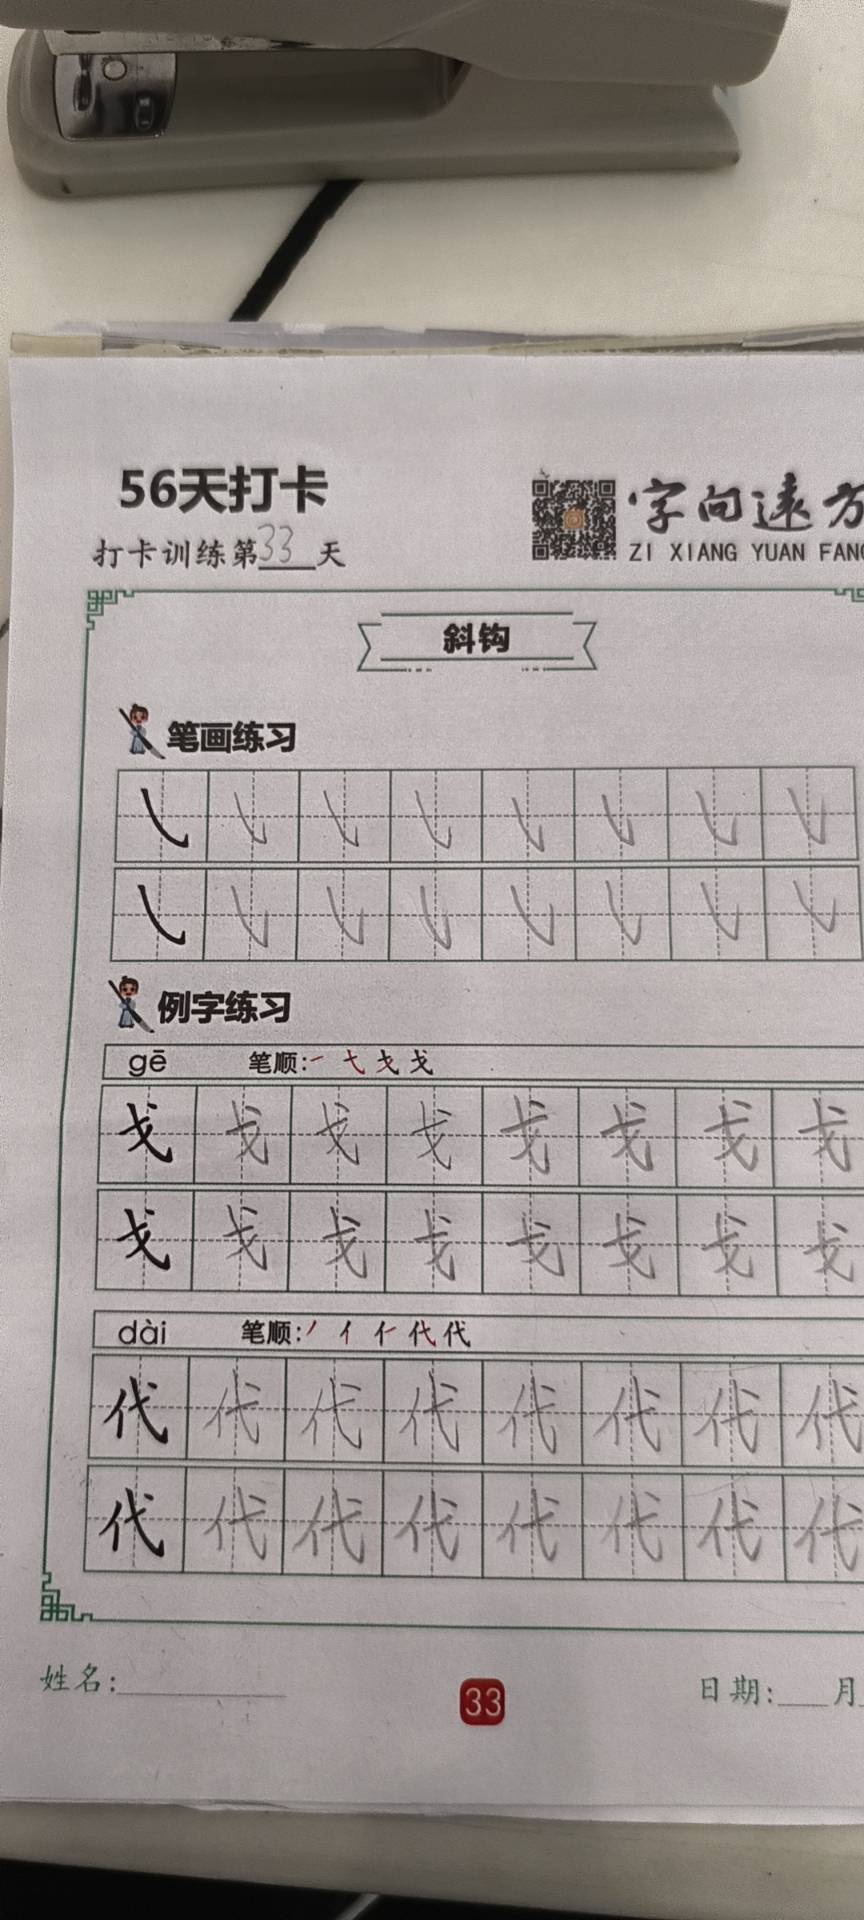 56天打卡
打卡训练第33天
字向远方
ZI XIANG YUAN FANG
斜钩
笔画练习
㇂ ㇂ ㇂ ㇂ ㇂ ㇂ ㇂ ㇂
㇂ ㇂ ㇂ ㇂ ㇂ ㇂ ㇂ ㇂
例字练习
gē 笔顺:㇀ 七 戈 戈
戈 戈 戈 戈 戈 戈 戈 戈
戈 戈 戈 戈 戈 戈 戈 戈
dài 笔顺:丿 亻 仁 代 代
代 代 代 代 代 代 代 代
代 代 代 代 代 代 代 代
姓名:
33
日期: 月